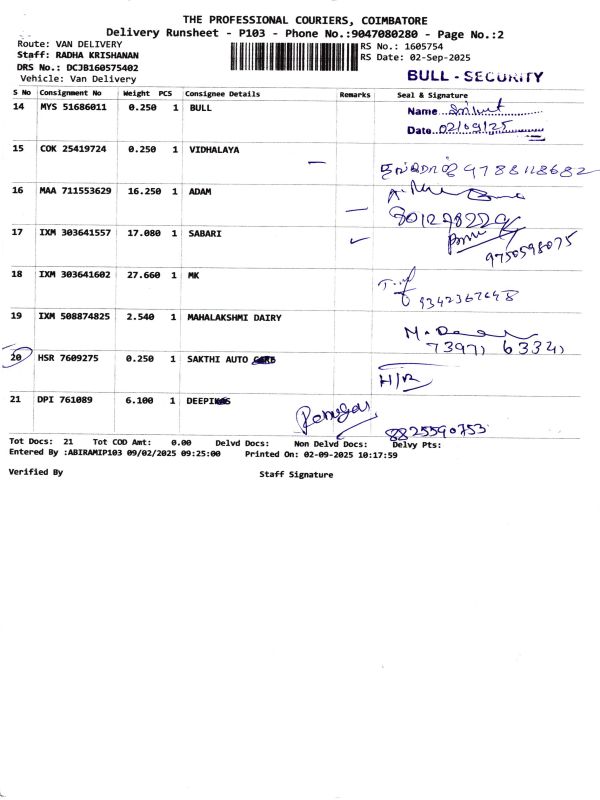 THE PROFESSIONAL COURIERS, COIMBATORE
Delivery Runsheet - P103 - Phone No.:9047080280 - Page No.:2
Route: VAN DELIVERY
Staff: RADHA KRISHANAN
DRS No.: DCJB160575402
Vehicle: Van Delivery
RS No.: 1605754
RS Date: 02-Sep-2025
BULL - SECURITY
S No Consignment No Weight PCS Consignee Details Remarks Seal & Signature
14 MYS 51686011 0.250 1 BULL
Name
Date 02/09/25
15 COK 25419724 0.250 1 VIDHALAYA
9788118682
16 MAA 711553629 16.250 1 ADAM
17 IXM 303641557 17.080 1 SABARI
9750598075
18 IXM 303641602 27.660 1 MK
9342367648
19 IXM 508874825 2.540 1 MAHALAKSHMI DAIRY
20 HSR 7609275 0.250 1 SAKTHI AUTO
21 DPI 761089 6.100 1
8825590753
Tot Docs: 21 Tot COD Amt: 0.00 Delvd Docs: Non Delvd Docs: Delvy Pts:
Entered By :ABIRAMIP103 09/02/2025 09:25:00 Printed On: 02-09-2025 10:17:59
Verified By Staff Signature